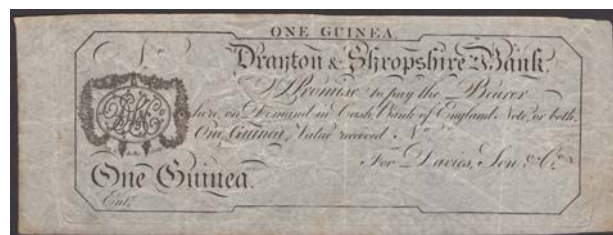 ONE GUINEA.
Drayton & Shropshire Bank.
I Promise to pay the Bearer
here, on Demand in Cash, Bank of England Note, or both,
One Guinea, Value received No
For Davies, Son & Co.
One Guinea.
Ent.